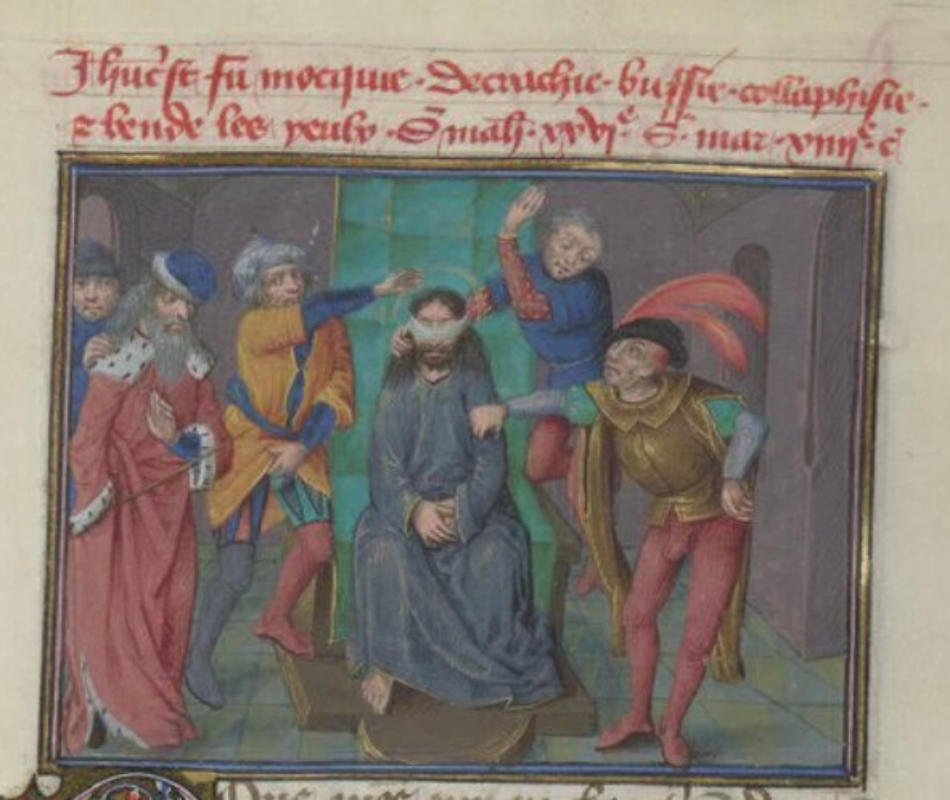 Jhūcst fu mocquie · decrachie · buffie · collaphisie ·
⁊ bende les yeulx · S mah · xxvi^e S mar · xiiii^e c̄